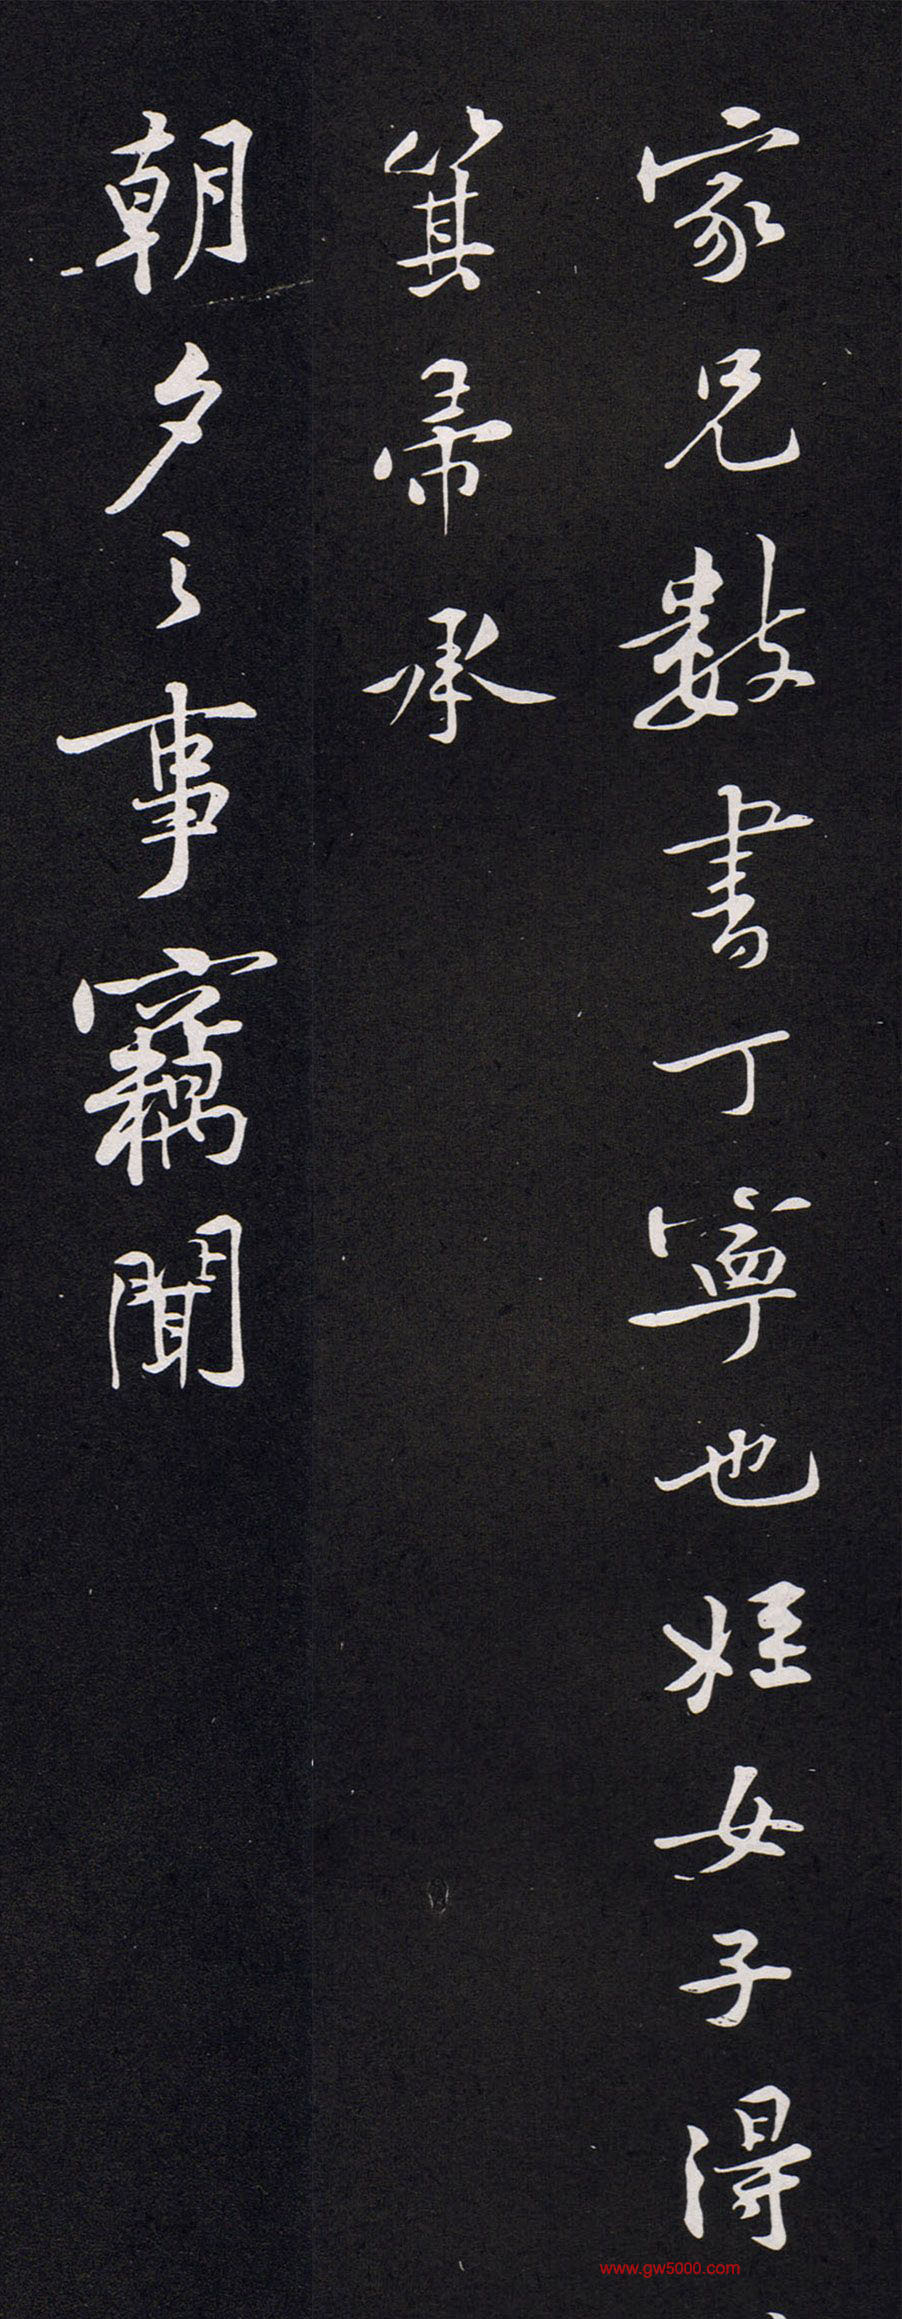 家兄數書丁寧也姪女子得
箕帚承
朝夕之事竊聞
www.gw5000.com